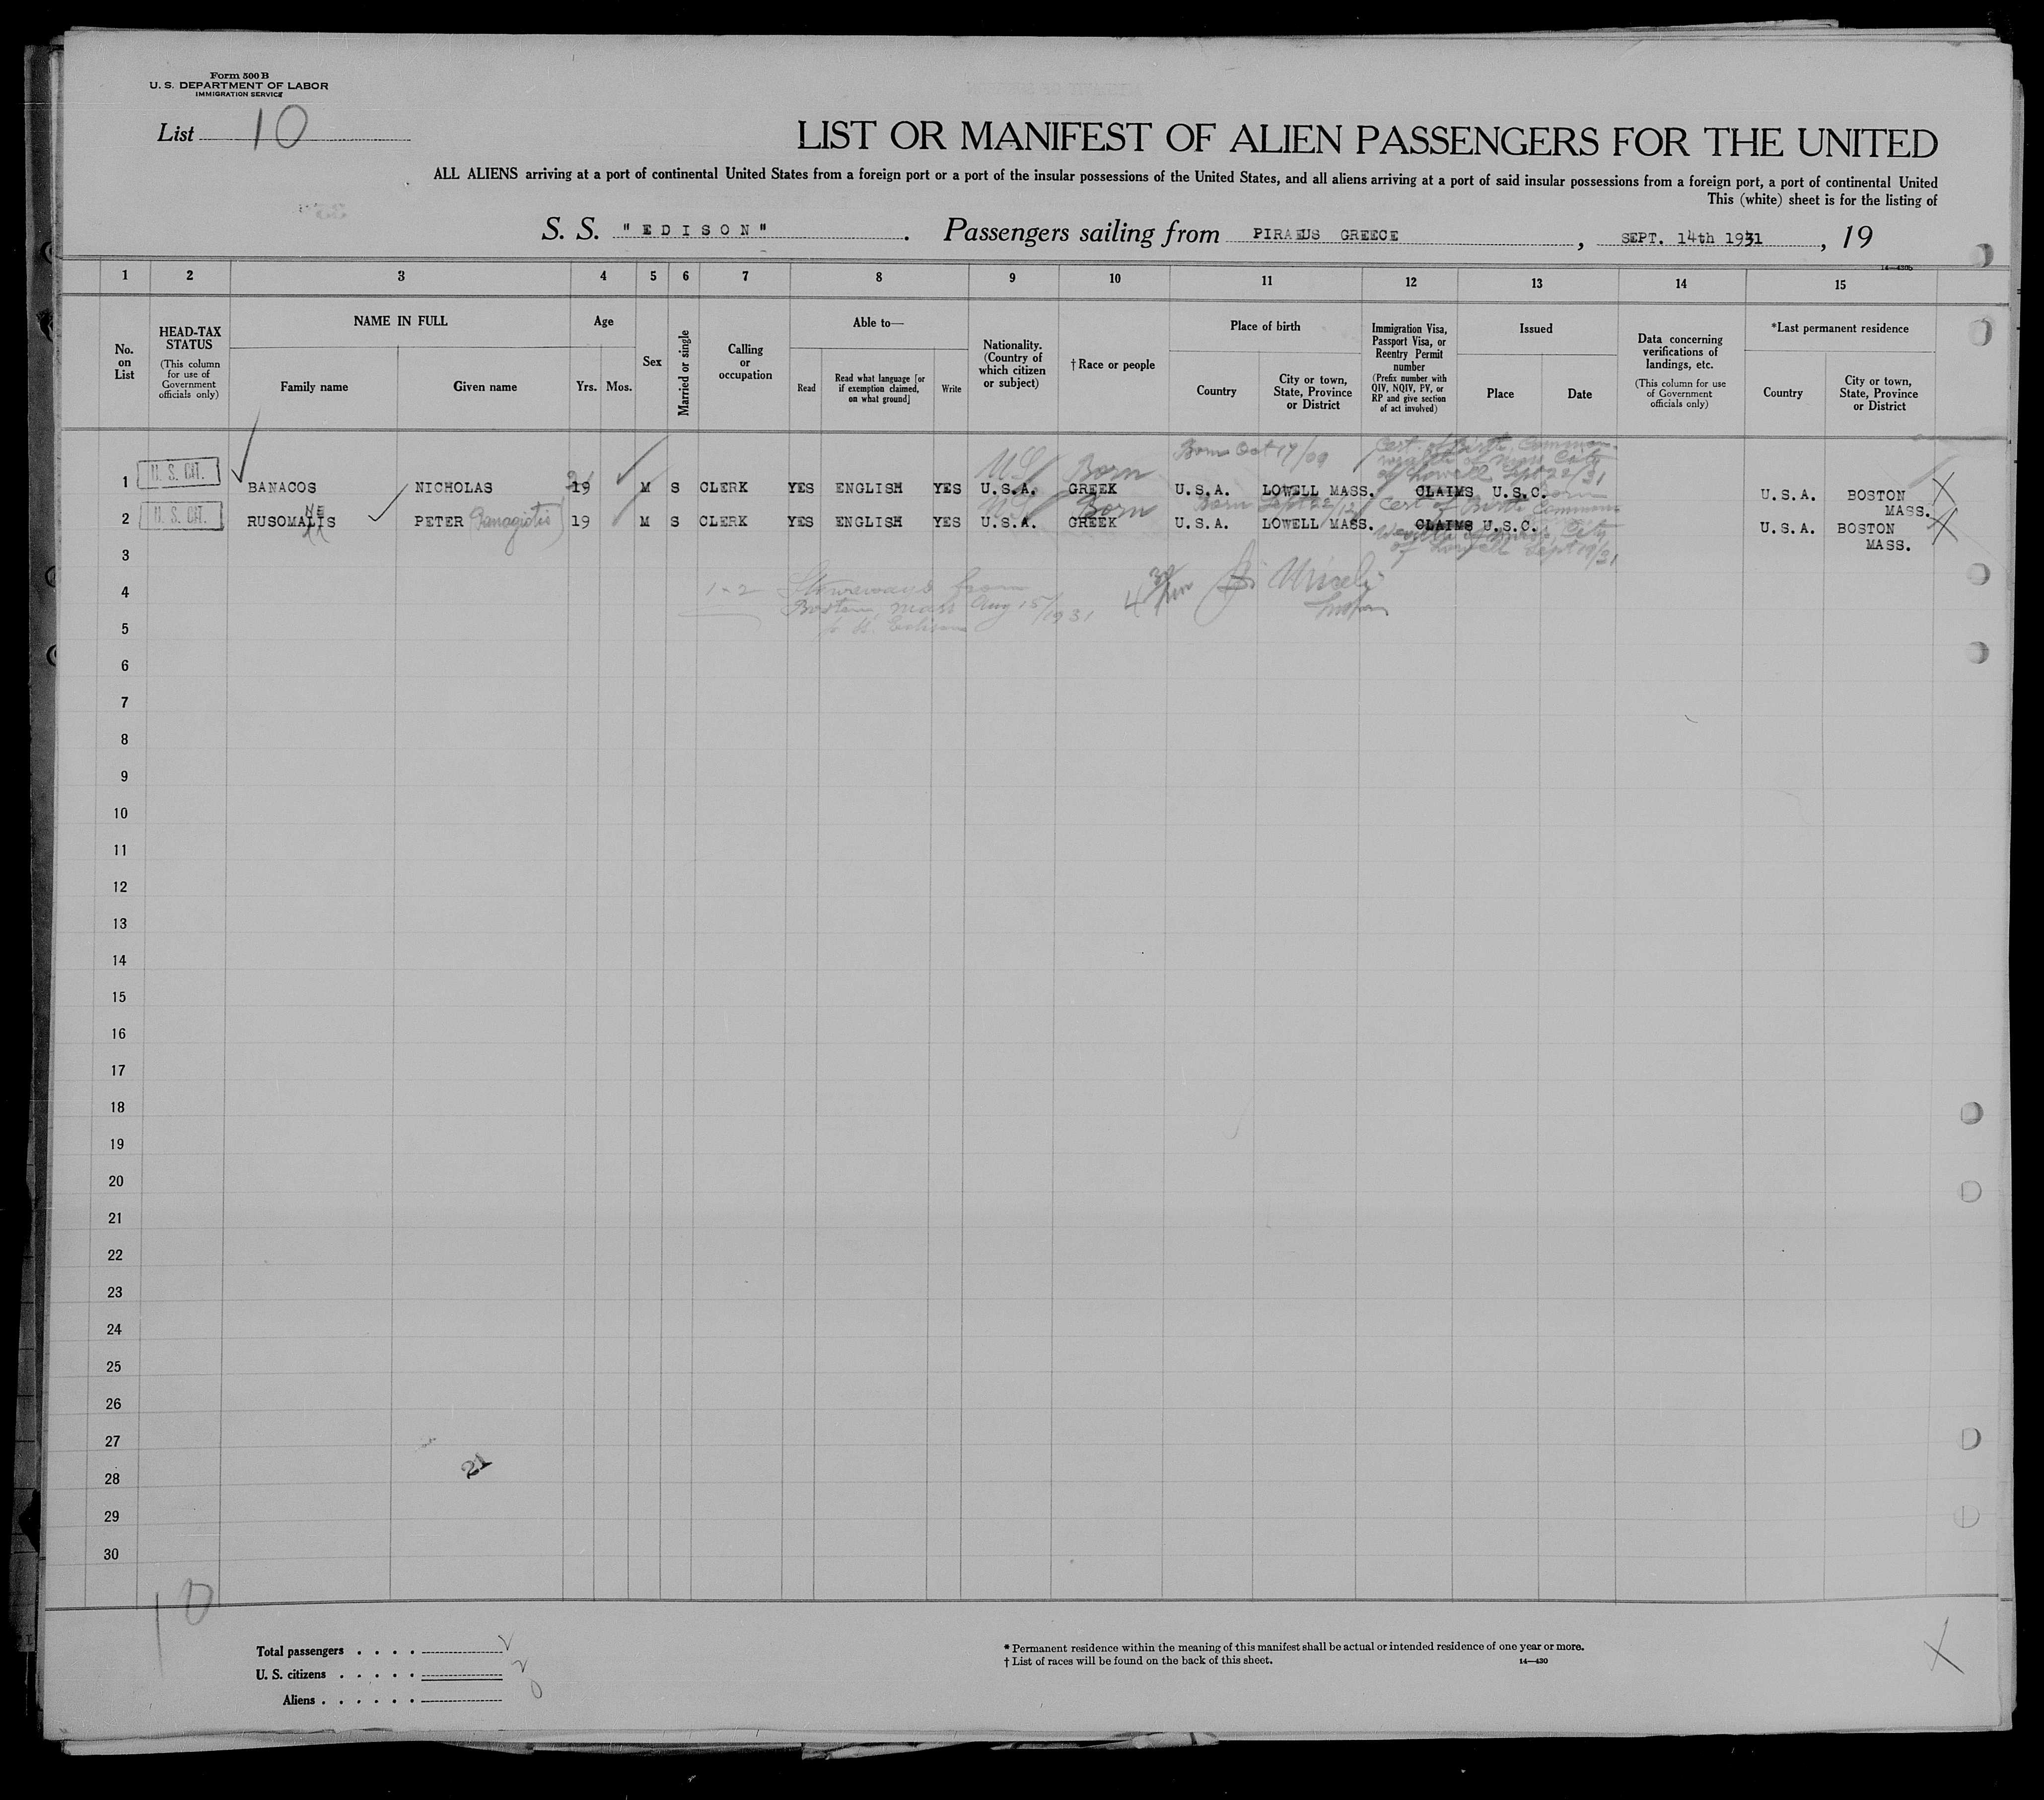 Form 500 B
U. S. DEPARTMENT OF LABOR
IMMIGRATION SERVICE
List 10
LIST OR MANIFEST OF ALIEN PASSENGERS FOR THE UNITED
ALL ALIENS arriving at a port of continental United States from a foreign port or a port of the insular possessions of the United States, and all aliens arriving at a port of said insular possessions from a foreign port, a port of continental United
This (white) sheet is for the listing of
S. S. "EDISON". Passengers sailing from PIRAEUS GREECE, SEPT. 14th 1931, 19
14—430b
1 2 3 4 5 6 7 8 9 10 11 12 13 14 15
No. on List
HEAD-TAX STATUS
(This column for use of Government officials only)
NAME IN FULL
Family name
Given name
Age
Yrs. Mos.
Sex
Married or single
Calling or occupation
Able to—
Read
Read what language [or if exemption claimed, on what ground]
Write
Nationality. (Country of which citizen or subject)
† Race or people
Place of birth
Country
City or town, State, Province or District
Immigration Visa, Passport Visa, or Reentry Permit number
(Prefix number with QIV, NQIV, PV, or RP and give section of act involved)
Issued
Place
Date
Data concerning verifications of landings, etc.
(This column for use of Government officials only)
*Last permanent residence
Country
City or town, State, Province or District
US Born Born Oct 17/09 Cert. of Birth Common-
wealth of Mass City
of Lowell Sept 22/31
1 U. S. CIT. BANACOS NICHOLAS 19 M S CLERK YES ENGLISH YES U.S.A. GREEK U.S.A. LOWELL MASS. CLAIMS U.S.C. U.S.A. BOSTON MASS.
US Born Born Sept 22/12 Cert of Birth Common
2 U. S. CIT. RUSOMALIS PETER (Panagiotis) 19 M S CLERK YES ENGLISH YES U.S.A. GREEK U.S.A. LOWELL MASS. CLAIMS U.S.C. U.S.A. BOSTON MASS.
wealth of Mass, City
of Lowell Sept 19/31
3
4
1-2 Stowaways from
Boston, Mass Aug 15/1931
Edison
5
6
7
8
9
10
11
12
13
14
15
16
17
18
19
20
21
22
23
24
25
26
27
21
28
29
30
10
Total passengers . . . .
U. S. citizens . . . . .
Aliens . . . . . .
* Permanent residence within the meaning of this manifest shall be actual or intended residence of one year or more.
† List of races will be found on the back of this sheet.
14—430